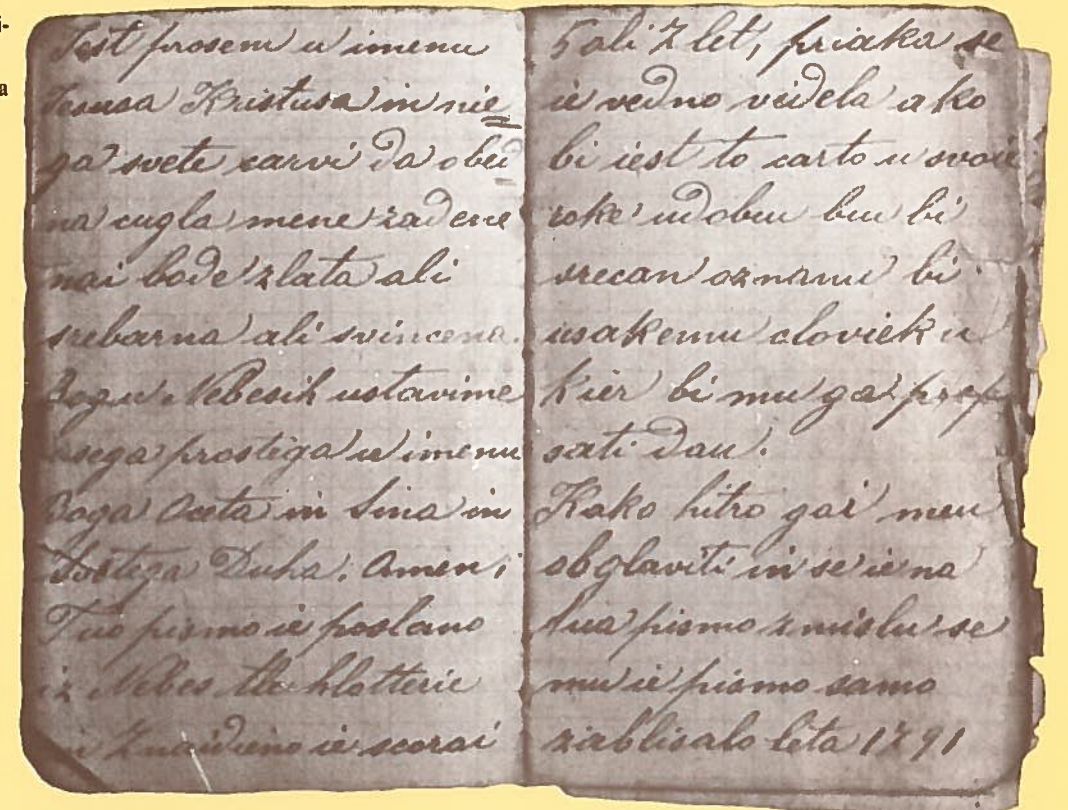 Jest prosem u imenu
Jesusa Kristusa in nie
ga svete carvi da obei
na cugla mene zadene
nai bode zlata ali
srebarna ali svincena.
Bogu Nebesih ustavime
usega prostiga u imenu
Boga Oceta in Sina in
Svetega Duha. Amen;
Tuo pismo ie poslano
iz Nebes
in Znaidieno ie scorai
5 ali 7 let, priaka se
ie vedno videla ako
bi iest to carto u svoie
roke udobu bi
srecan oznanu bi
usakemu cloviek u
kier bi mu ga prep
sati dau.
Kako hitro gai meu
obglaviti in se ie na
tua pismo zmislu se
mu ie pismo samo
ziablisalo leta 1791